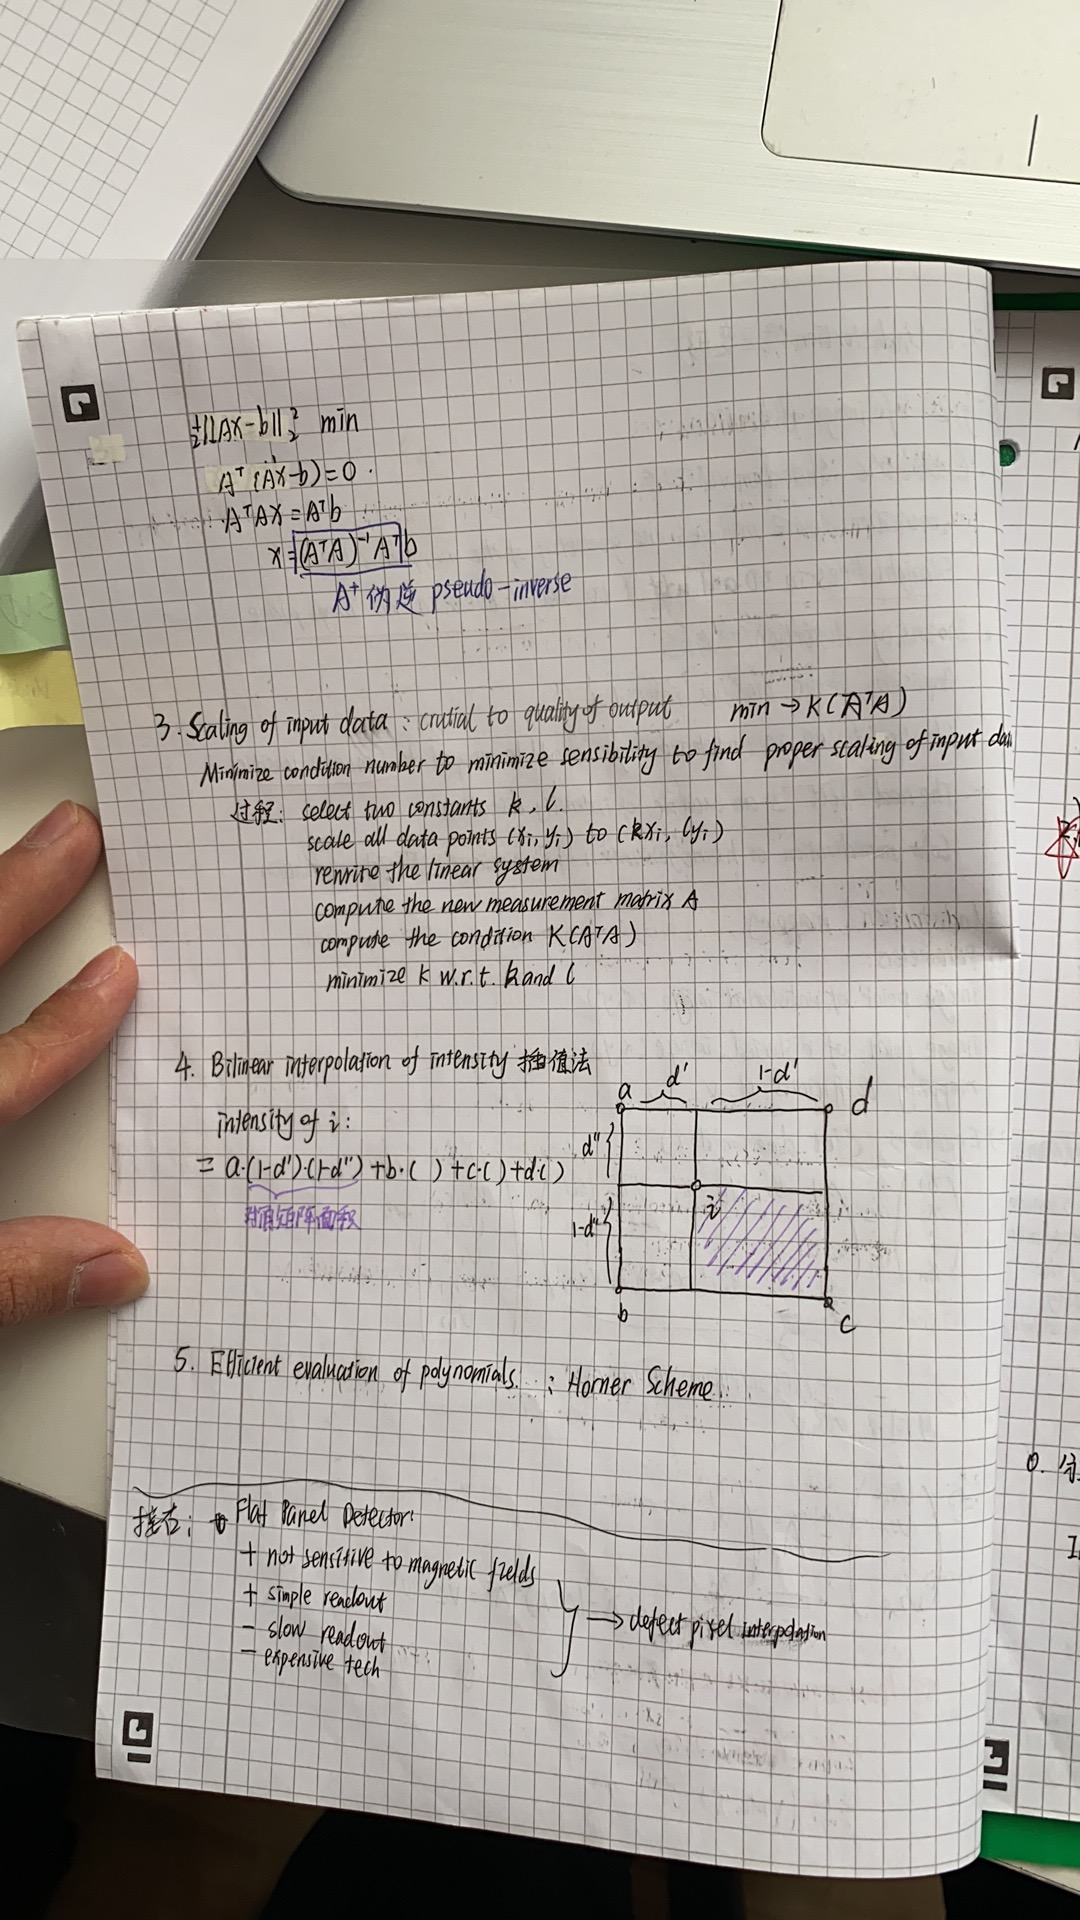 ½||Ax-b||₂² min
Aᵀ(Ax-b)=0.
AᵀAx=Aᵀb
x=(AᵀA)⁻¹Aᵀb
A⁺ 伪逆 pseudo-inverse
3. Scaling of input data: crucial to quality of output min → K(AᵀA)
Minimize condition number to minimize sensibility to find proper scaling of input da
过程: select two constants k, l.
scale all data points (xi, yi) to (kxi, lyi)
rewrite the linear system
compute the new measurement matrix A
compute the condition K(AᵀA)
minimize K w.r.t. k and l
4. Bilinear interpolation of intensity 插值法
intensity of i:
= a·(1-d')·(1-d'')+b·( )+c·( )+d·( )
对角矩阵面积
a d' 1-d' d
d''
i
1-d''
b c
5. Efficient evaluation of polynomials. : Horner Scheme.
Flat Panel Detector:
+ not sensitive to magnetic fields
+ simple readout
- slow readout → defect pixel interpolation
- expensive tech
0.